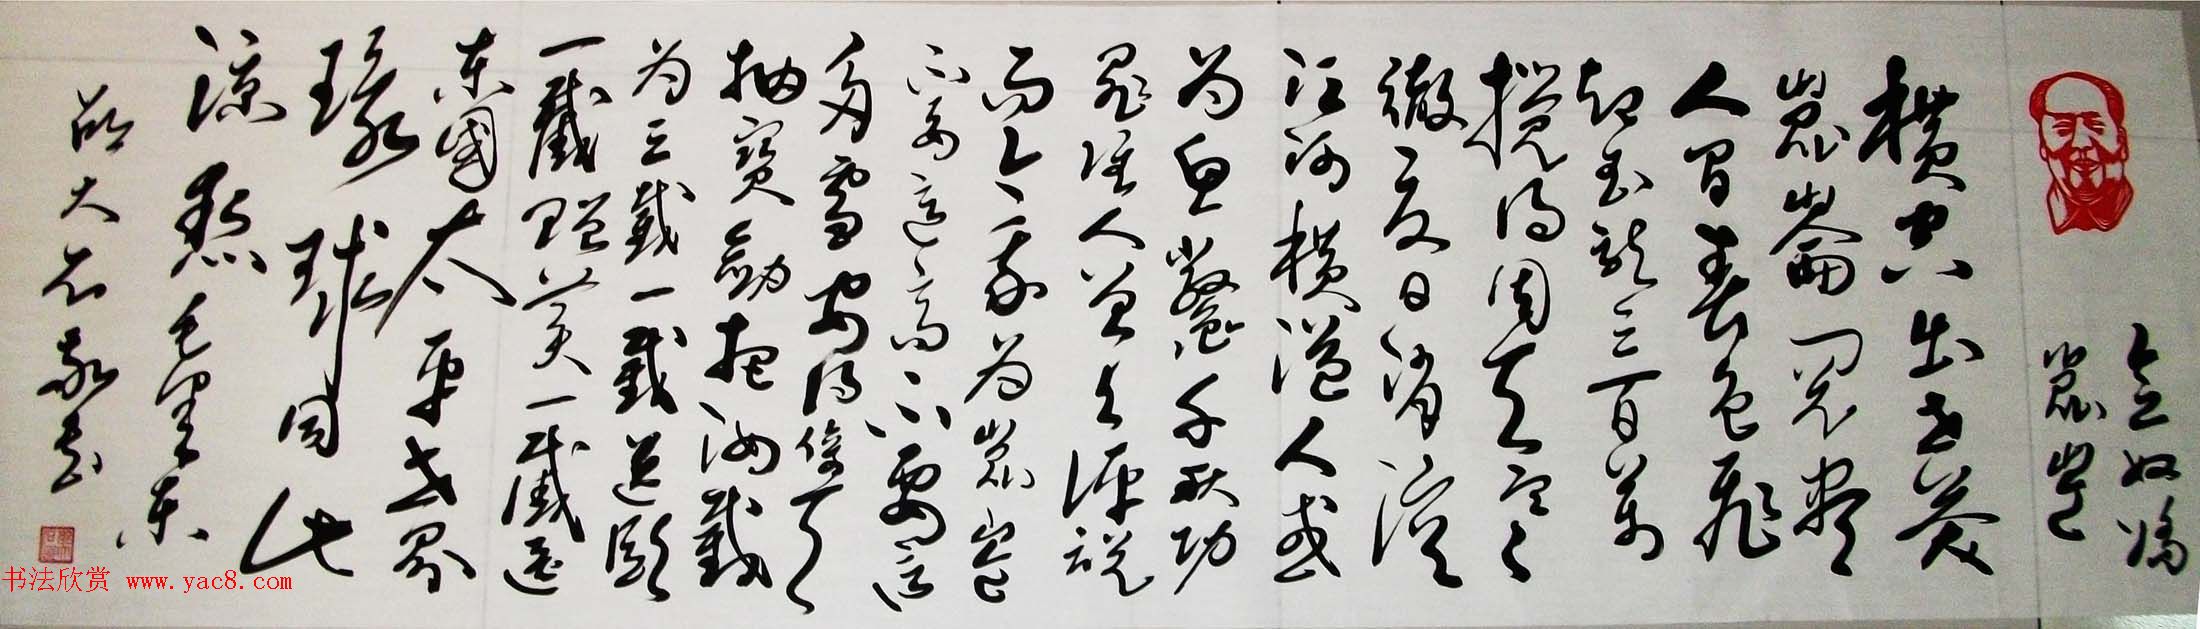 念奴娇
崑崙
横空出世莽
崑崙阅尽
人间春色飛
起玉龍三百萬
搅得周天寒
徹夏日消溶
江河横溢人或
为鱼鳖千秋功
罪谁人曾与评说
而今我为崑崙
不要这高不要这
多雪安得倚天
抽寶劍把汝裁
为三截一截遗欧
一截赠美一截还
东國太平世界
環球同此
凉热毛泽东
大石敬书
书法欣赏 www.yac8.com